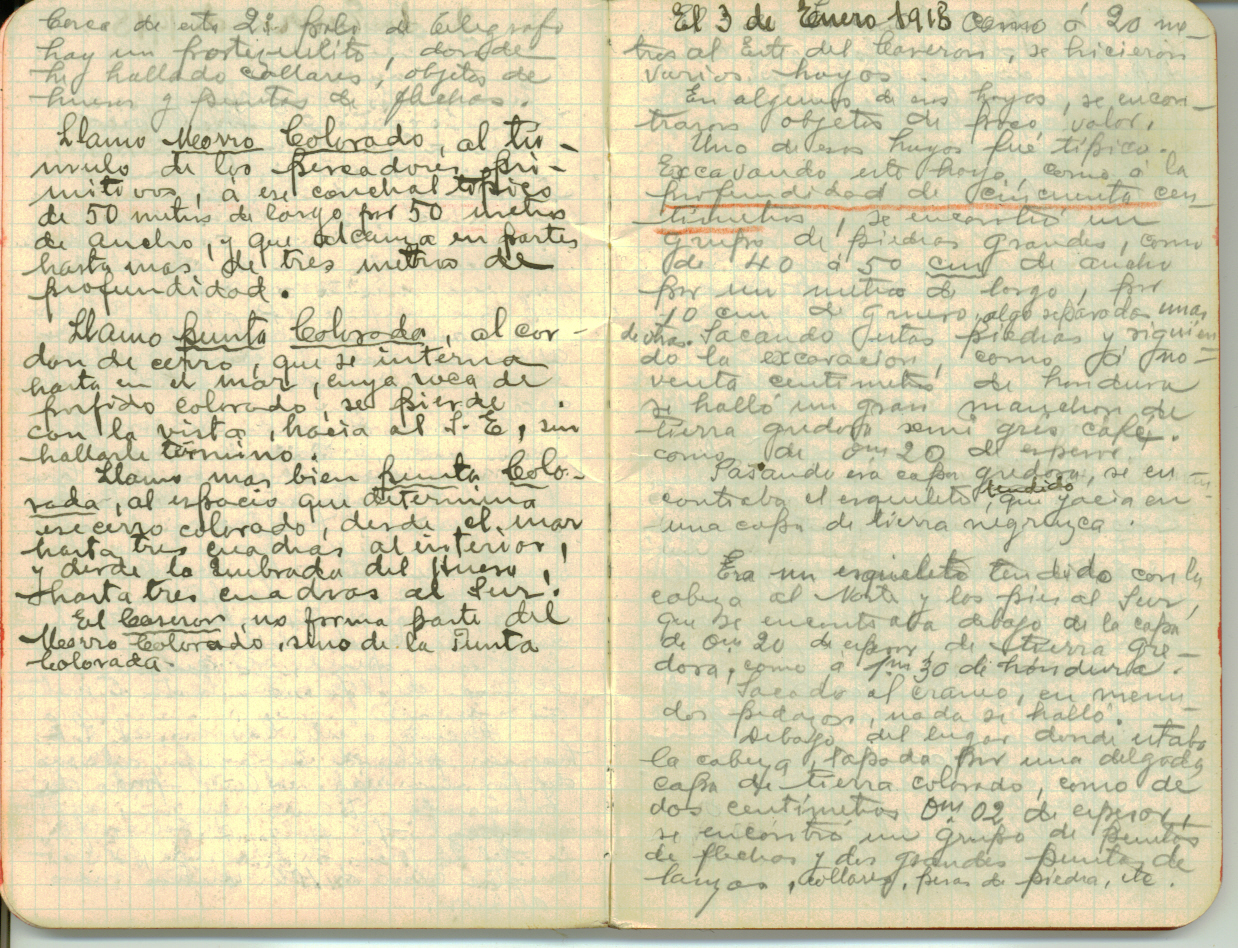 Cerca de este 2º palo de telegrafo
hay un portezuelito, donde
he hallado collares, objetos de
hueso y puntas de flechas.
Llamo Morro Colorado, al tú-
mulo de los pescadores pri-
mitivos, a ese conchal típico
de 50 metros de largo por 50 metros
de ancho, y que alcanza en partes
hasta mas de tres metros de
profundidad.
Llamo punta Colorada, al cor-
don de cerro, que se interna
hasta en el mar, cuya roca de
porfido colorado, se pierde
con la vista, hacia al S-E, sin
hallarle término.
Llamo mas bien punta Colo-
rada, al espacio que determina
ese cerro colorado, desde el mar
hasta tres cuadras al interior,
y desde la Quebrada del Hueso,
hasta tres cuadras al Sur.
El Caseron, no forma parte del
Morro Colorado, sino de la Punta
Colorada.
El 3 de Enero 1918 Como á 20 me-
tros al Este del Caseron, se hicieron
varios hoyos.
En algunos de esos hoyos, se encon-
traron objetos de poco valor.
Uno de esos hoyos fué típico.
Excavando este hoyo, como á la
profundidad de cincuenta cen-
timetros, se encontró un
grupo de piedras grandes, como
de 40 á 50 cm de ancho
por un metro de largo, por
10 cm de grueso, algo separadas unas
de otras. Sacando estas piedras y siguien-
do la excavacion, como á no-
venta centimetros de hondura
se halló un gran manchon de
tierra gredosa semi gris café.
como de 0m 20 de espesor.
Pasando esa capa gredosa, se en-
contraba el esqueleto tendido, que yacia en
una capa de tierra negruzca.
Era un esqueleto tendido con la
cabeza al Norte y los pies al Sur,
que se encontraba debajo de la capa
de 0m 20 de espesor, de tierra gre-
dosa, como a 1m 30 de hondura.
Sacado el craneo, en menu-
dos pedazos, nada se halló.
Debajo del lugar donde estaba
la cabeza, tapada por una delgada
capa de tierra colorado, como de
dos centímetros 0m 02 de espesor,
se encontró un grupo de puntas
de flechas y dos grandes puntas de
lanzas, collares, pesas de piedra, etc.